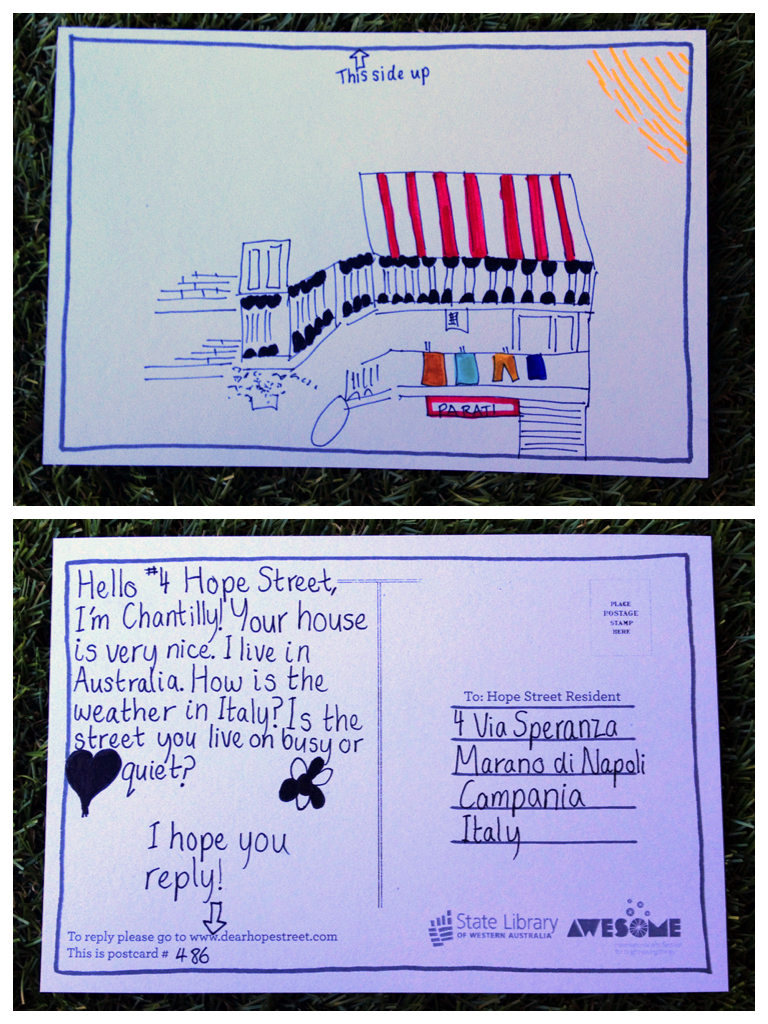 This side up
PARATI
Hello #4 Hope Street,
I'm Chantilly! Your house
is very nice. I live in
Australia. How is the
weather in Italy? Is the
street you live on busy or
quiet?
I hope you
reply!
To reply please go to www.dearhopestreet.com
This is postcard # 486
PLACE
POSTAGE
STAMP
HERE
To: Hope Street Resident
4 Via Speranza
Marano di Napoli
Campania
Italy
State Library
OF WESTERN AUSTRALIA
AWESOME